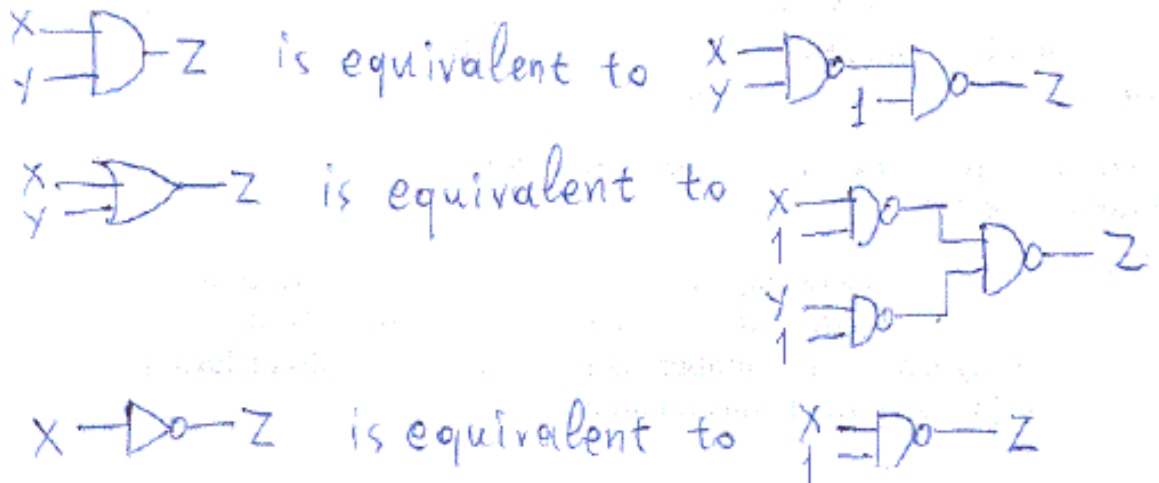 X
Y Z is equivalent to X
Y 1 Z
X
Y Z is equivalent to X
1
Z
Y
1
X Z is equivalent to X
1 Z